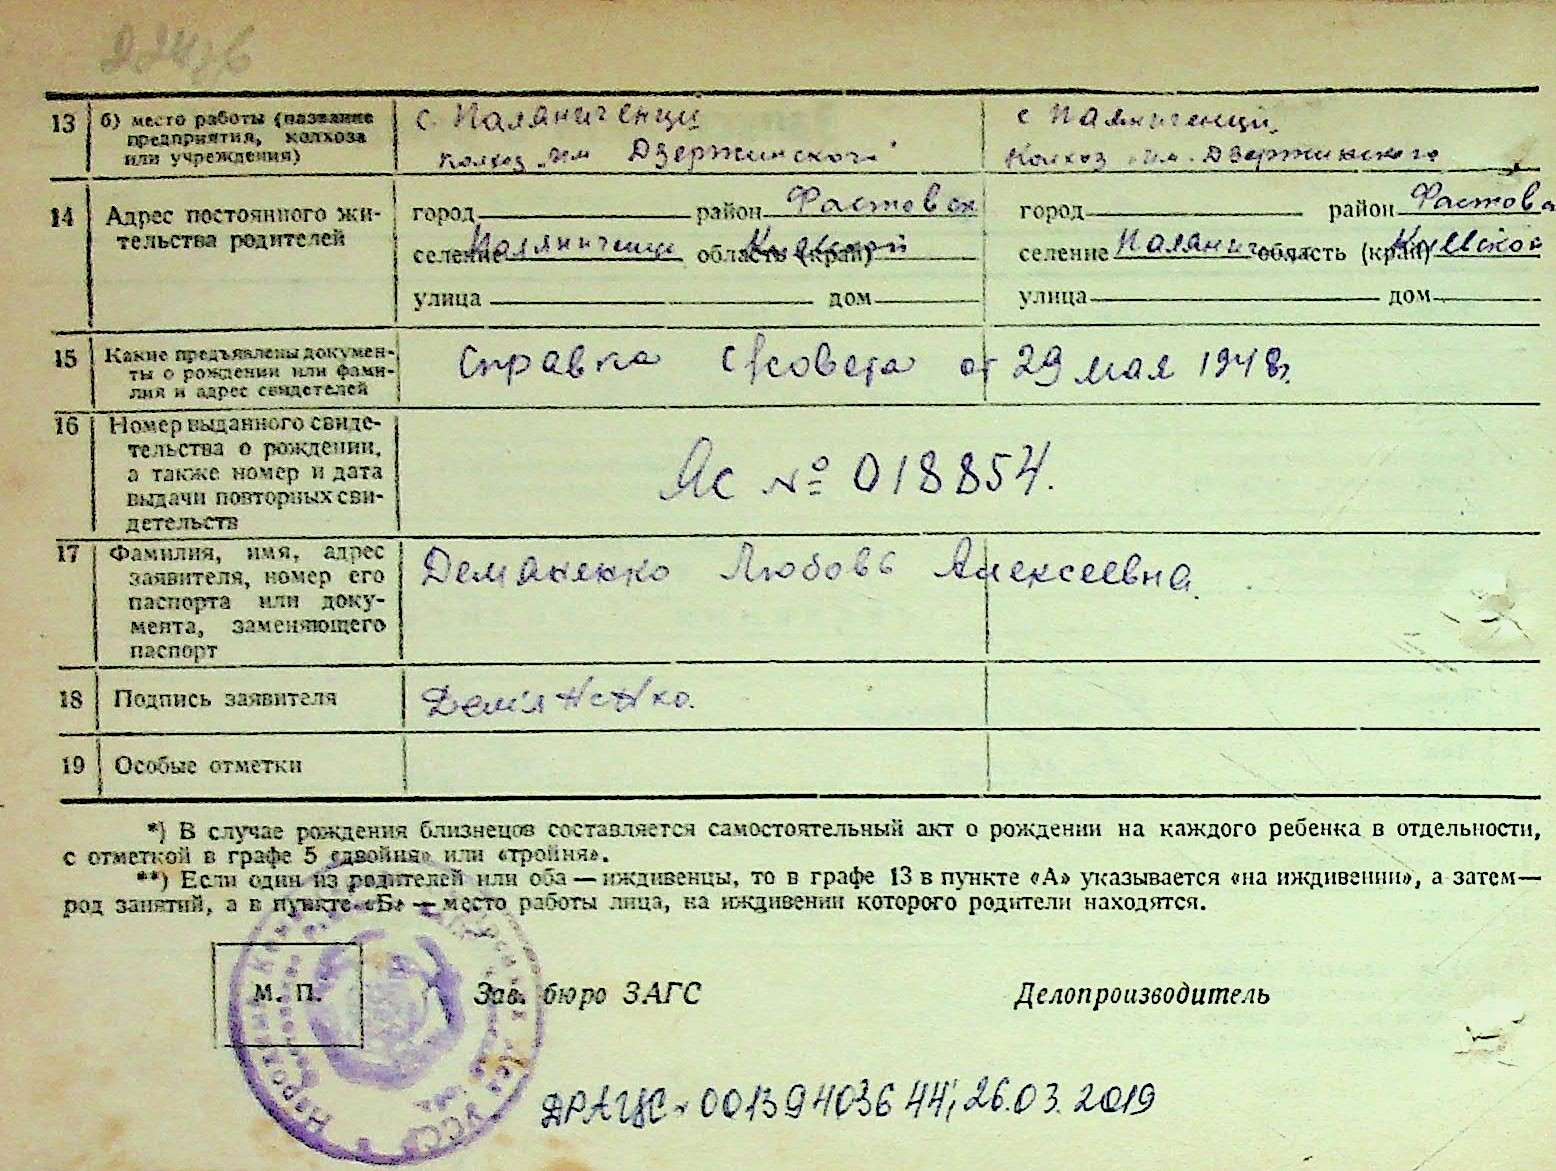 13 б) место работы (название с. Паляниченци с Паляниченци.
предприятия, колхоза
или учреждения) колхоз им Дзержинского колхоз им. Дзержинского
14 Адрес постоянного жи- город район Фастовск город район Фастовск
тельства родителей селение Паляниченци область (край) Киевской селение Паляниченци область (край) Киевской
улица дом улица дом
15 Какие предъявлены докумен- Справка с/совета от 29 мая 1948г.
ты о рождении или фами-
лия и адрес свидетелей
16 Номер выданного свиде-
тельства о рождении,
а также номер и дата Яс № 018854.
выдачи повторных сви-
детельств
17 Фамилия, имя, адрес Деманенко Любовь Алексеевна.
заявителя, номер его
паспорта или доку-
мента, заменяющего
паспорт
18 Подпись заявителя Дем'яненко.
19 Особые отметки
*) В случае рождения близнецов составляется самостоятельный акт о рождении на каждого ребенка в отдельности,
с отметкой в графе 5 «двойня» или «тройня».
**) Если один из родителей или оба — иждивенцы, то в графе 13 в пункте «А» указывается «на иждивении», а затем —
род занятий, а в пункте «Б» — место работы лица, на иждивении которого родители находятся.
М. П. Зав. бюро ЗАГС Делопроизводитель
ДРАЦС - 00139403644; 26.03.2019